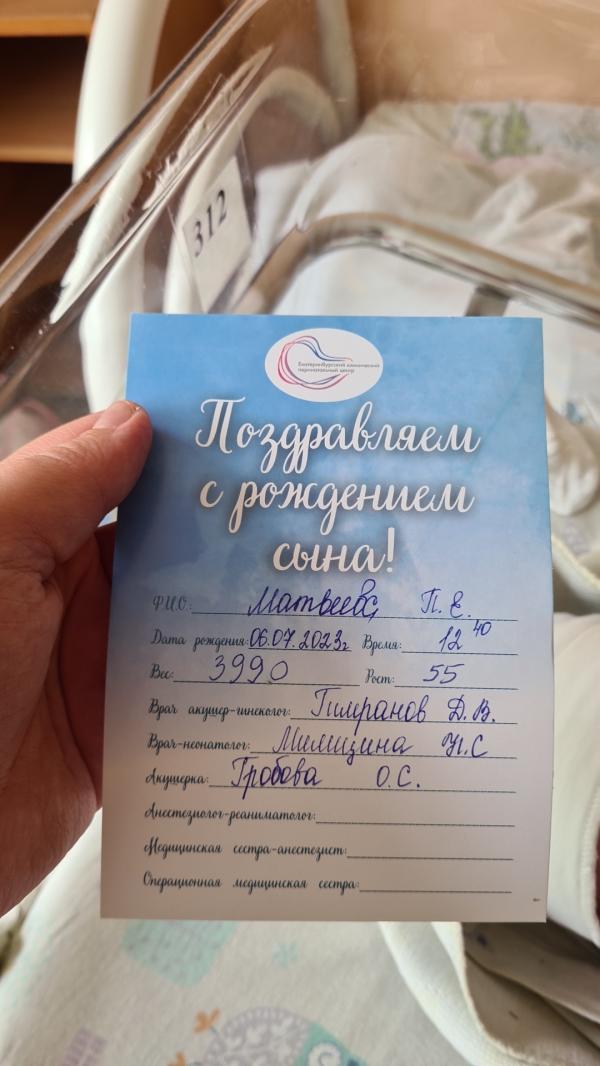 312
Екатеринбургский клинический
перинатальный центр
Поздравляем
с рождением
сына!
Ф.И.О.: Матвеева П. Е.
Дата рождения: 06.07.2023г Время: 12 40
Вес: 3990 Рост: 55
Врач акушер-гинеколог: Гимранов Д. В.
Врач-неонатолог:
Акушерка: Гробова О.С.
Анестезиолог-реаниматолог:
Медицинская сестра-анестезист:
Операционная медицинская сестра: